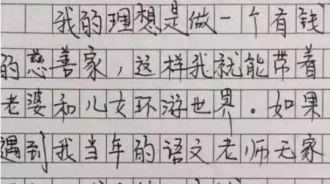 我的理想是做一个有钱
的慈善家，这样我就能带着
老婆和儿女环游世界．如果
遇到我当年的语文老师无家